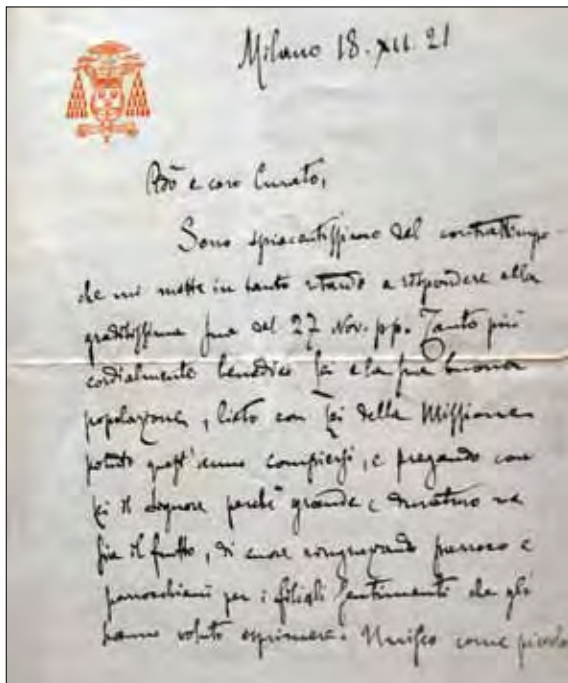 Milano 18. XII. 21
Rdō e caro Curato,
Sono spiacentissimo del contrattempo
che mi mette in tanto ritardo a rispondere alla
graditissima sua del 27 Nov. p.p. Tanto più
cordialmente benedico Lei e la sua buona
popolazione, lieto con Lei della Missione
potuta quest'anno compiersi, e pregando con
Lei il Signore perchè grande e duraturo ne
sia il frutto, di cuore ringraziando parroco e
parrocchiani per i figliali sentimenti che gli
hanno voluto esprimere. Unisco come piccolo